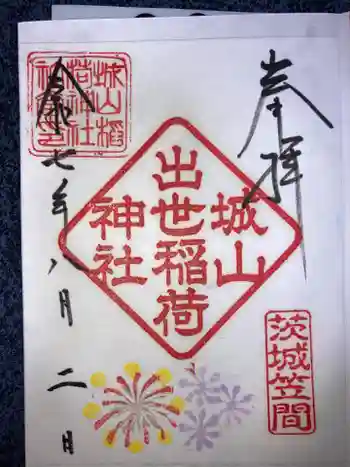 奉拝
城山
出世稲荷
神社
茨城笠間
城山稲
荷神社
令和七年八月二日